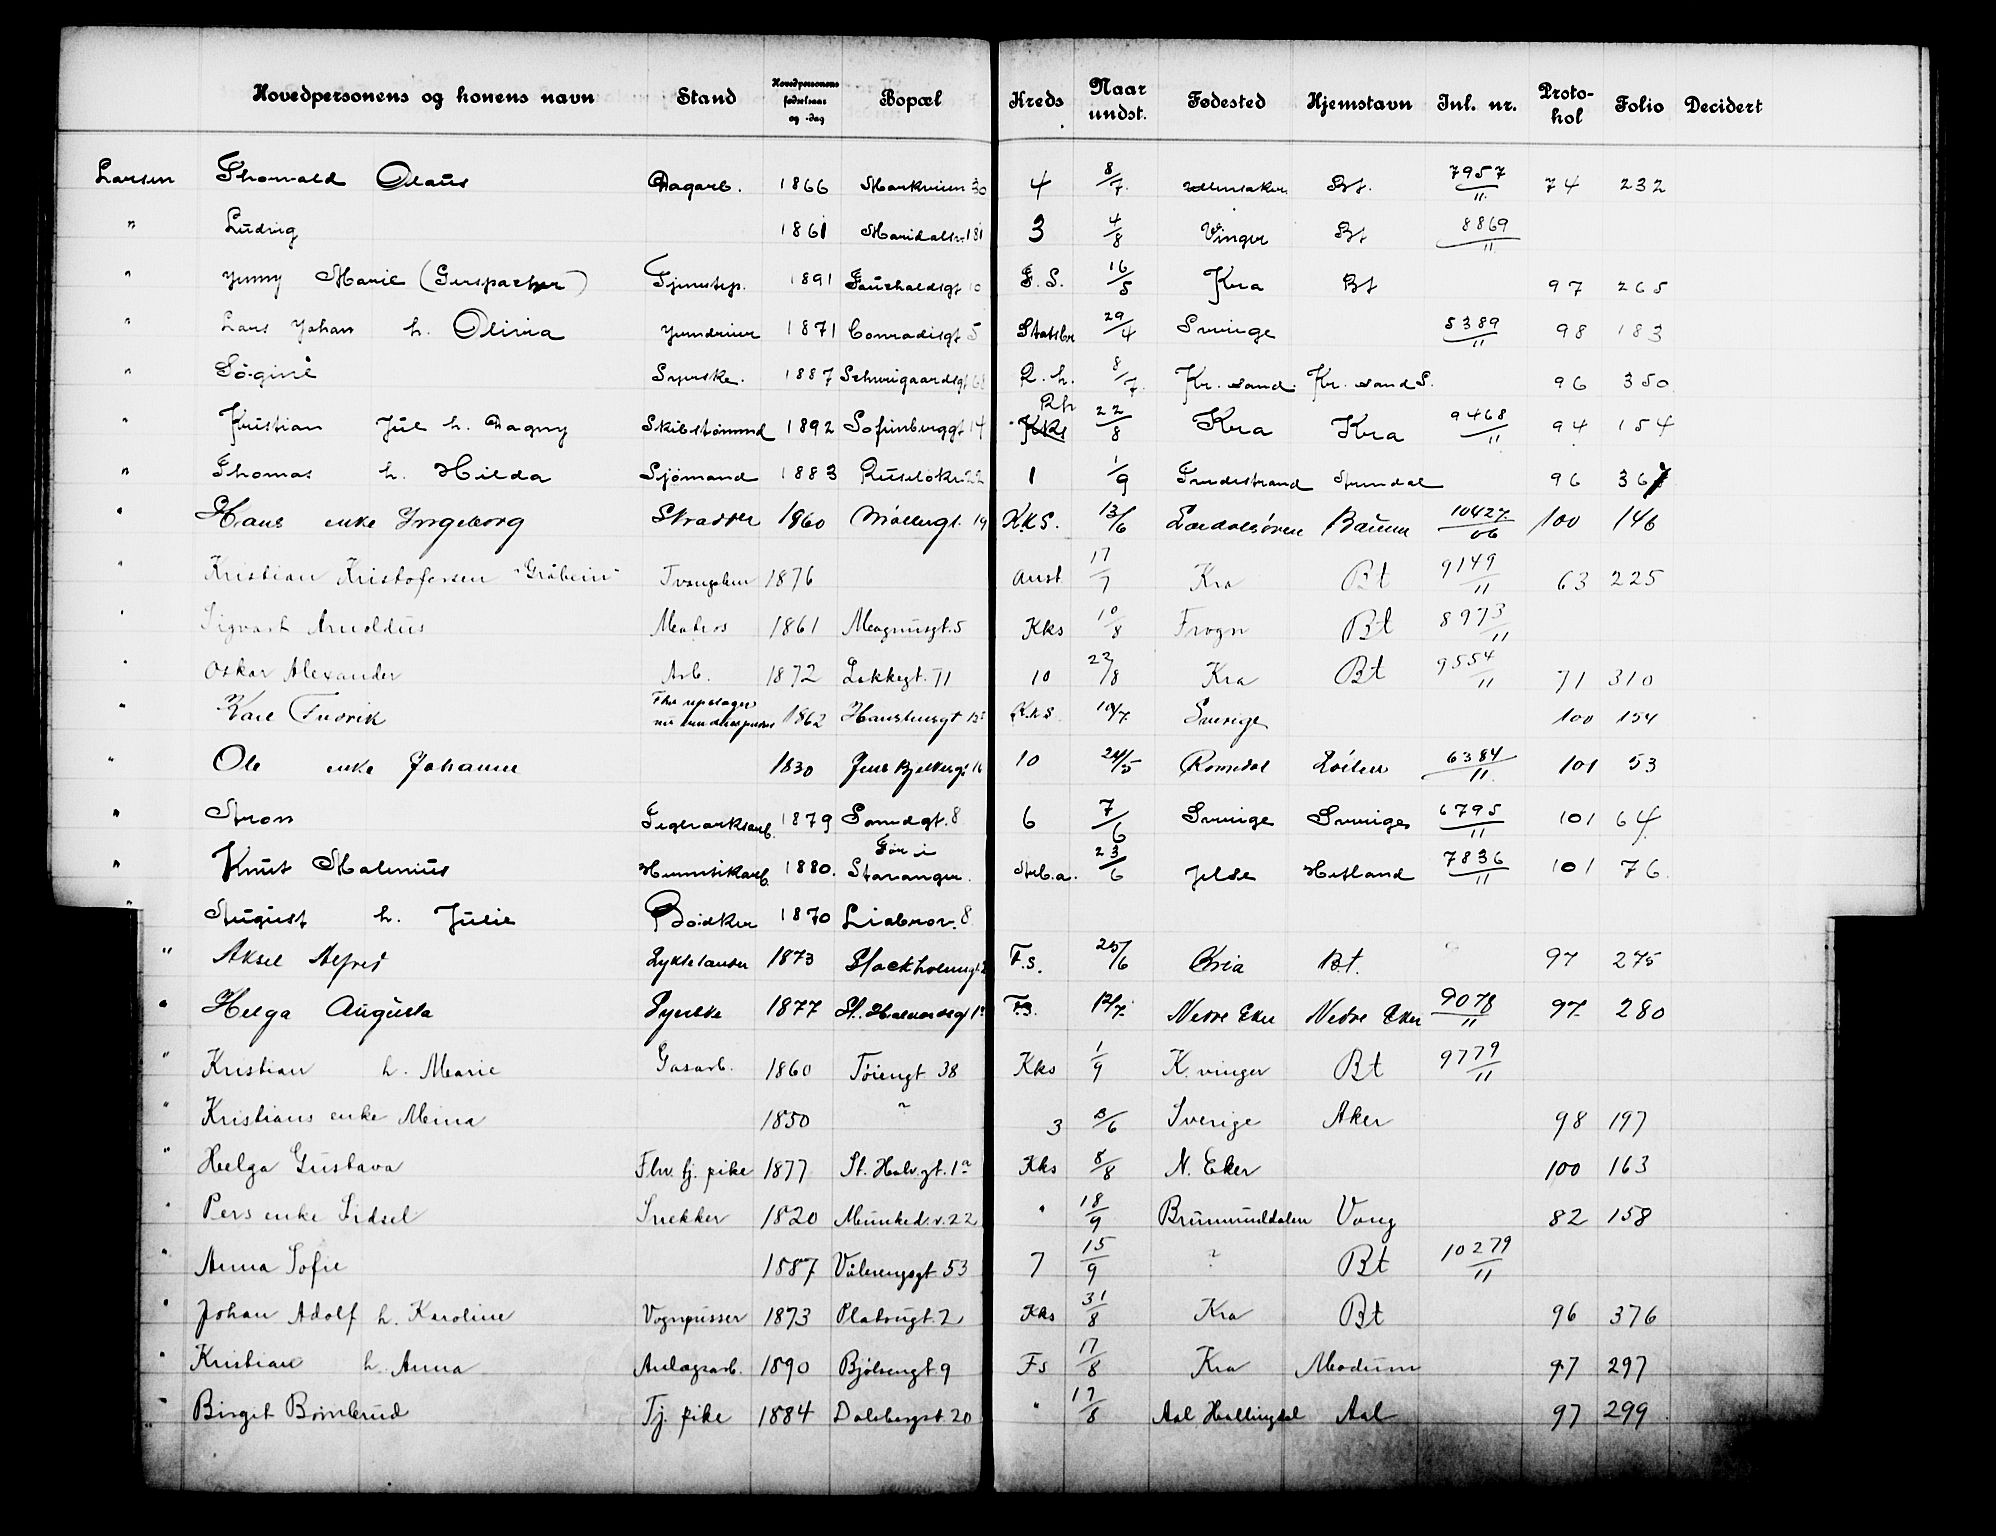 Hovedpersonens og konens navn Stand Hovedpersonens fødselsaar og -dag Bopæl Kreds Naar undst. Fødested Hjemstavn Inl. nr. Protokol Folio Decidert
Larsen Thorvald Olaus Dagarb. 1866 Markveien 30 4 8/7 Ullensaker Bt. 7957/11 74 232
" Ludvig 1861 Maridalsv. 181 3 4/8 Vinger Bt 8869/11
" Jenny Marie ( Tjenestep. 1891 Fauchaldsgt 10 F. S. 16/5 Kra Bt 97 265
" Lars Johan h. Olivia Jerndreier 1871 Conradisgt 5 Statsbr 29/4 Sverige 5389/11 98 183
" Syerske. 1887 Schweigaardsgt 68 R. h. 8/7 Kr. sand. Kr. sand S. 96 350
" Kristian Jul h. Dagny Skibstømmd 1892 Sofienberggt 14 Rh Kks 22/8 Kra Kra 9468/11 94 154
" Thomas h. Hilda Sjömand 1883 Ruseløkv. 22 1 1/9 96 367
" Hans enke Ingeborg Skrædder 1860 Møllergt. 19 K.K.S. 13/6 Lærdalsøren Bærum 10427/06 100 146
" Kristian Kristofersen "Gråbein" 1876 Anst 17/7 Kra Bt 9149/11 63 225
" Sigvart Arnoldus Matros 1861 Magnusgt. 5 Kks 10/8 Frogn Bt 8973/11
" Oskar Alexander Arb. 1872 Lakkegt. 71 10 22/8 Kra Bt 9554/11 71 310
" Karl Fredrik 1862 Hausmansgt K.k.S. 10/7 Sverige 100 154
" Ole enke Johanne 1830 Jens Bjelkesgt 16 10 24/5 Romedal Løiten 6384/11 101 53
" Aron Teglverksarb. 1879 Sandgt. 8 6 7/6 Sverige Sverige 6795/11 101 64
" Knut Malenius Hermetikarb. 1880. Før i Stavanger. Strb.a. 23/6 Jelse Hetland 7836/11 101 76
" August h. Julie Bödker 1870 Liabrov. 8
" Aksel Alfred Lyktetænder 1873 Stockholmsgt F.s. 25/6 Kria Bt. 97 275
" Helga Augusta Syerske 1877 St. Halvardsgt 1a F.S. 12/7 Nedre Eker Nedre Eker 9078/11 97 280
" Kristian h. Marie Gasarb. 1860 Töiengt. 38 Kks 1/9 K.vinger Bt 9779/11
" Kristians enke Mina 1850 ~ 3 3/6 Sverige Aker 98 197
" Helga Gustava Fhv. tj. pike 1877 St. Halv.gt. 1a Kks 8/8 N. Eker 100 163
" Pers enke Sidsel Snekker 1820 Munked.v. 22 " 18/9 Brumunddalen Vang 82 158
" Anna Sofie 1887 Vålerengsgt 53 7 15/9 ? Bt 10279/11
" Johan Adolf h. Karoline Vognpusser 1873 Platousgt. 2 Kks 31/8 Kra Bt 96 376
" Kristian h. Anna Anlægsarb. 1890 Bjølsengt. 9 Fs 17/8 Kra Modum 97 297
" Birgit Tj. pike 1884 Dalsbergst. 20 " 17/8 Aal Hallingdal Aal 97 299